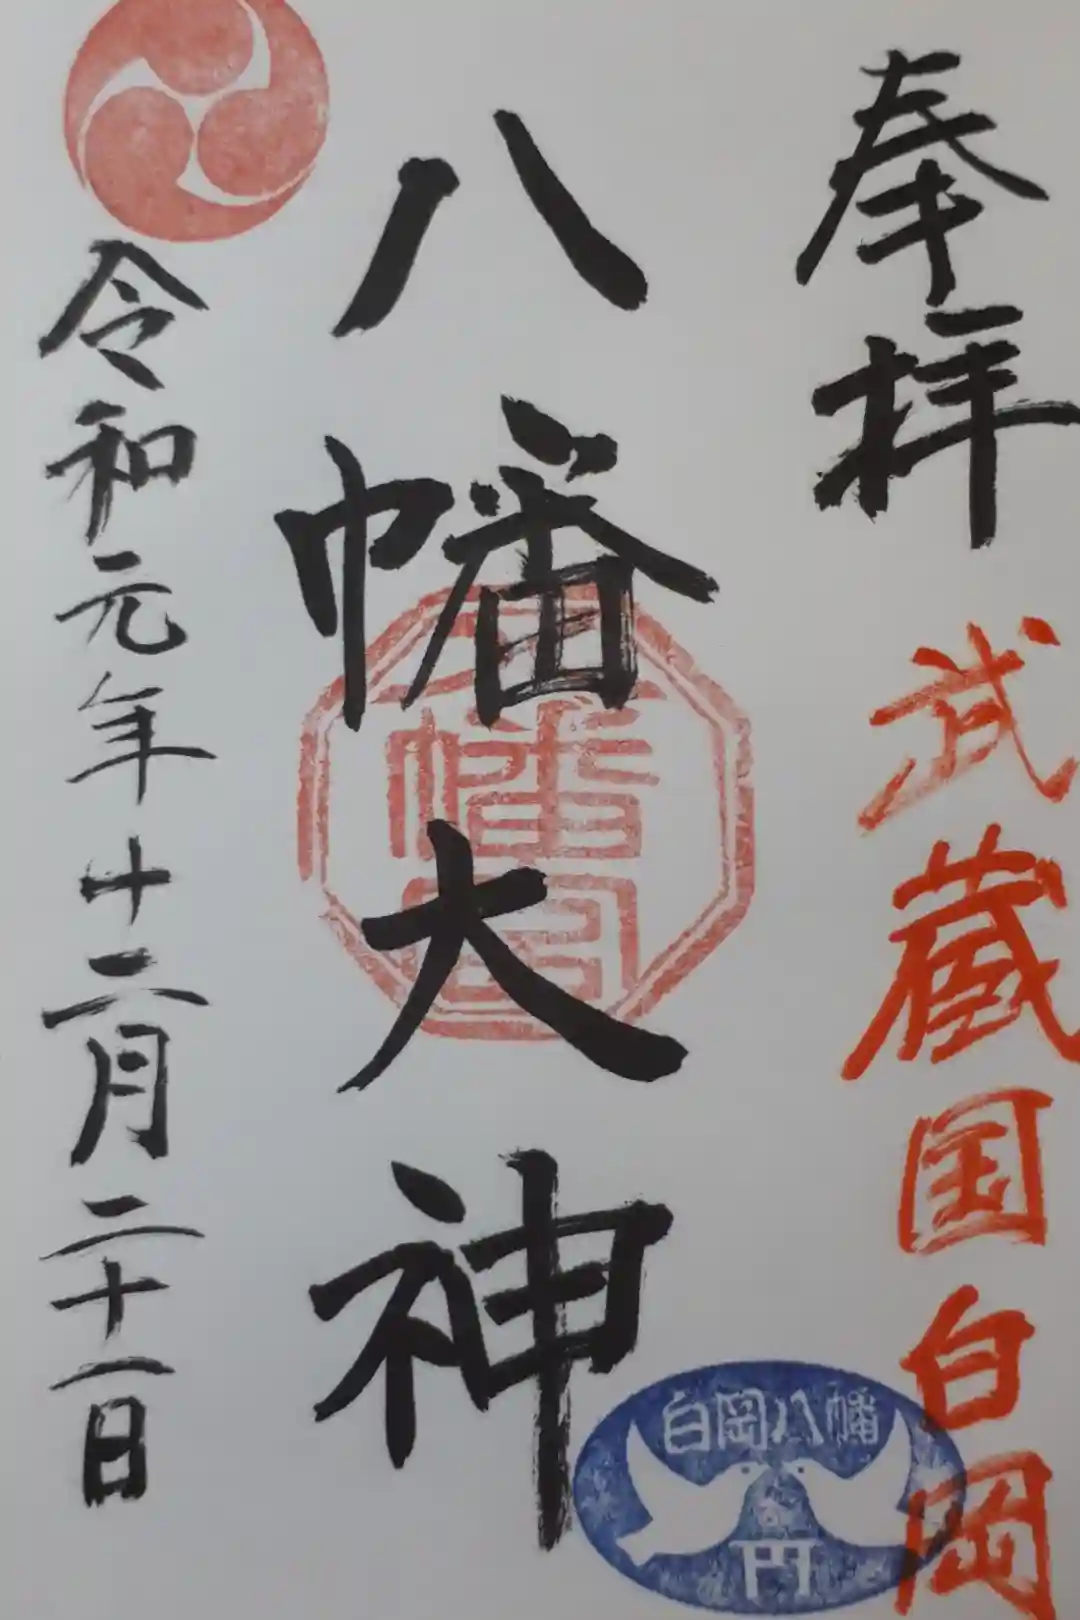 奉拝
武蔵国白岡
八幡大神
令和元年十二月二十一日
八幡宮
白岡八幡